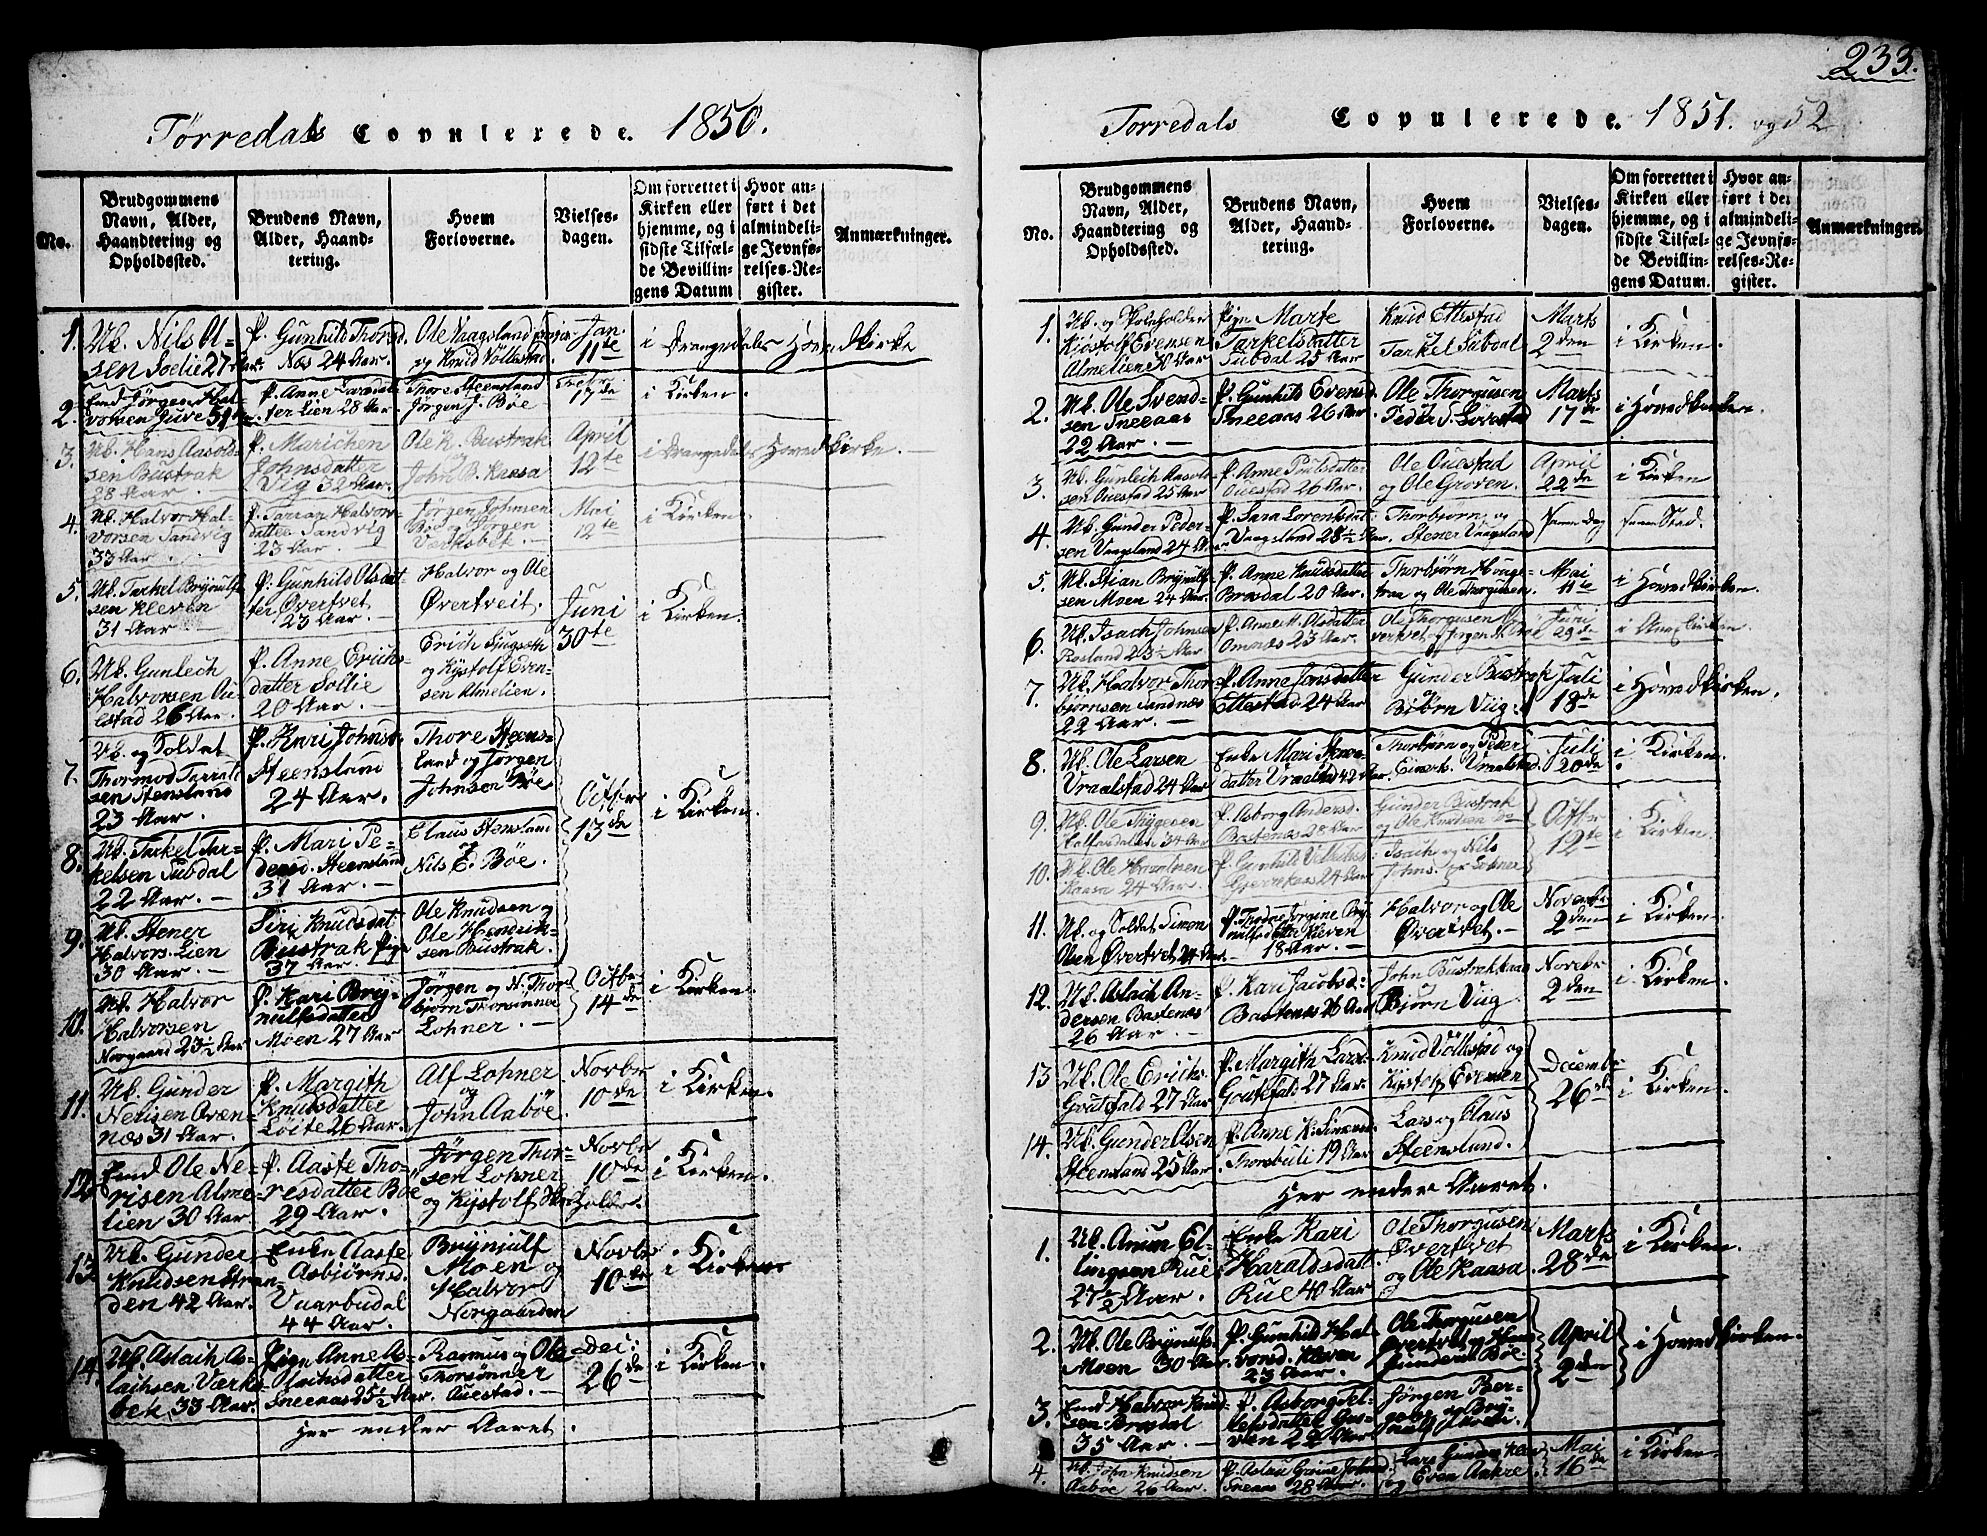 Tørredals Copulerede. 1850.
No.
Brudgommens Navn, Alder, Haandtering og Opholdssted.
Brudens Navn, Alder, Haandtering.
Hvem Forloverne.
Vielsesdagen.
Om forrettet i Kirken eller hjemme, og i sidste Tilfælde Bevillingens Datum
Hvor anført i det almindelige Jevnførelses-Register.
Anmærkninger.
1. Uk. Nils Olsen Soelie 27 Aar. P. Gunhild Thorsd. Nos 24 Aar. Ole Vaagsland og Knud Vøllestad Jan. 11te i Drangedals Hovedkirke
2. Emd Jørgen Halvorsen Juve 51 P. Anne Larsdatter Lien 28 Aar. Thore Steensland Jørgen J. Bøe 17de i Kirken.
3. Uk. Hans Aasoldsen Bustrak 28 Aar. P. Marichen Johnsdatter Vig 32 Aar. Ole K. Bustrak og John B. Kaasa April 12te i Drangedals Hovedkirke.
4. Uk. Halvor Halvorsen Sandvig 33 Aar. P. Tarran Halvorsdatter Sandvig 23 Aar. Jørgen Johnsen Bøe og Jørgen Værksbek. Mai 12te i Kirken.
5. Uk. Tarkel Brynulfsen Kleven 31 Aar. P. Gunhild Olsdatter Øvertvet 23 Aar. Halvor og Ole Øvertveit. Juni 30te i Kirken.
6. Uk. Gunlech Halvorsen Auestad 26 Aar. P. Anne Erichsdatter Sollie 20 Aar. Erich og Kjstolf Evensen Almelien.
7. Uk. og Soldat Thormod Tarraldsen Stensland 23 Aar. P. Kari Johnsd. Steensland 24 Aar. Thore Steensland og Jørgen Johnsen Bøe Octbr 13de i Kirken.
8. Uk. Tarkel Tarkelsen Tubdal 22 Aar. P. Mari Pedersd. Steensland 31 Aar. Claus Stensland og Nils E. Bøe.
9. Uk. Stener Halvors. Lien 30 Aar. Siri Knudsdat. Bustrak Pige 37 Aar. Ole Knudsen og Ole Hendriksen Bustrak.
10. Uk. Halvor Halvorsen Norgaard 23½ Aar P. Kari Brynulfsdatter Moen 27 Aar Jørgen og N. Thorbjørn Thorsønner Lohner. Octbr 14de i Kirken.
11. Uk. Gunder Nerisen Ovennæs 31 Aar. P. Margith Knudsdatter Loite 26 Aar. Alf Lohner og John Aabøe. Novbr 10de i Kirken.
12. Emd Ole Nerisen Almelien 30 Aar. P. Aaste Thoresdatter Bøe 29 Aar. Jørgen Thorsen Lohner og Kjstolf Novbr 10de i Kirken.
13. Uk. Gunder Knudsen Stranden 42 Aar. Enke Aaste Asbjørnsd. Vaarbudal 44 Aar. Brynjulf Moen og Halvor Norgaarden Novbr 10de i Kirken
14. Uk. Aslach Aslachsen Værksbek, 33 Aar. Pige Anne Aslachsdatter Sneeaas 25½ Aar. Rasmus og Ole Thorsønner Auestad. Dec: 26de i Kirken.
Her ender Aaret.
233.
Torredals Copulerede. 1851. og 52
No.
Brudgommens Navn, Alder, Haandtering og Opholdssted.
Brudens Navn, Alder, Haandtering.
Hvem Forloverne.
Vielsesdagen.
Om forrettet i Kirken eller hjemme, og i sidste Tilfælde Bevillingens Datum.
Hvor anført i det almindelige Jevnførelses-Register.
Anmærkninger.
1. Uk. og Skoleholder Kjøstolf Evensen Almelien 30 Aar Pige Marte Tarkelsdatter Tubdal 25 Aar Knud Ettestad Tarkel Tubdal Marts 2den i Kirken.
2. Uk. Ole Svendsen Sneeaas 22 Aar. P. Gunhild Evensd. Sneeaas 26 Aar. Ole Thorgusen Peder S. Lovestad Marts 17de i Hovedkirken.
3. Uk. Gunlech Aasoldsen Ouestad 25 Aar P. Anne Poulsdatter Ouestad 26 Aar. Ole Ouestad og Ole Groven. April 22de i Kirken
4. Uk. Gunder Pedersen Vaagsland 24 P. Sara Lorentsdat. Vaagsland 28½ Thorbjørn og Stener Vaagsland samme Dag samme Sted.
5. Uk. Stian Brynulfsen Moen 24 Aar. P. Anne Knudsdatter Brøsdal 20 Aar. Thorbjørn og Ole Thorgusen. Mai 11te i Hovedkirken.
6. Uk. Isach Johnsen Rosland 23½ Aar P. Anne M. Olsdatter Omnæs 23 Aar. Ole Thorgusen Øvertvet og Jørgen Juni 29de i
7. Uk. Halvor Thorbjørnsen Sandnæs 22 Aar. P. Anne Jonsdatter Ettestad 24 Aar Gunder Bustrak Bjørn Viig. Juli 18de i Hovedkirken.
8. Uk. Ole Larsen Vraalstad 24 Aar Enke Mari Steensdatter Vraalstad 42 Aar. Thorbjørn og Peder Vraalstad. Juli 20de i Kirken.
9. Uk. Ole Tryggesen 34 Aar P. Asborg Andersd. Bostenæs 28 Aar Gunder Bustrak og Ole Knudsen Octbr 12te i Kirken.
10. Uk. Ole Kaasa 24 Aar. P. Gunhild 24 Aar Isach og Nils Johns. Lohner
11. Uk. og Soldat Simon Olsen Øvertvet 24 Aar P. Thone Jørgine Brynulfsdatter Kleven 18 Aar. Halvor og Ole Øvertvet. Novembr 2den i Kirken.
12. Uk. Aslach Andersen Bastenæs 26 Aar. P. Kari Jacobsd. Bastenæs 26 Aar John Bustrakkaas Bjørn Viig. Novebr 2den i Kirken.
13 Uk. Ole Erichs. Goutefald 27 Aar P. Margith Larsd. Goutefald 27 Aar. Knud Vøllestad og Kjstolf Evensen Decembr 26de i Kirken.
14. Uk. Gunder Olsen Steensland 25 Aar. P. Anne K. Simonsd. Thorsbuli 19 Aar Lars og Claus Steensland.
Her ender Aaret.
1. Uk. Anun Ellingsen Rue 27½ Aar. Enke Kari Haraldsdatt. Rue 40 Aar Ole Thorgusen Øvertvet og Ole Kaasa. Marts 28de i Kirken.
2. Uk. Ole Brynulfs. Moen 30 Aar. P. Gunhild Halvorsd. Kleven 23 Aar. Ole Thorgusen Øvertvet og Hans Gundersen Bøe. April 2den i Hovedkirken.
3. Emd Halvor Knudsen Brøsdal 35 Aar. P. Asborg 22 Aar Jørgen og Brynulf
4. Uk. John Knudsen Aaboe 26 Aar. P. Aslau Sneeaas 28 Aar. Lars og Even Ankre. Mai 16de i Kirken.